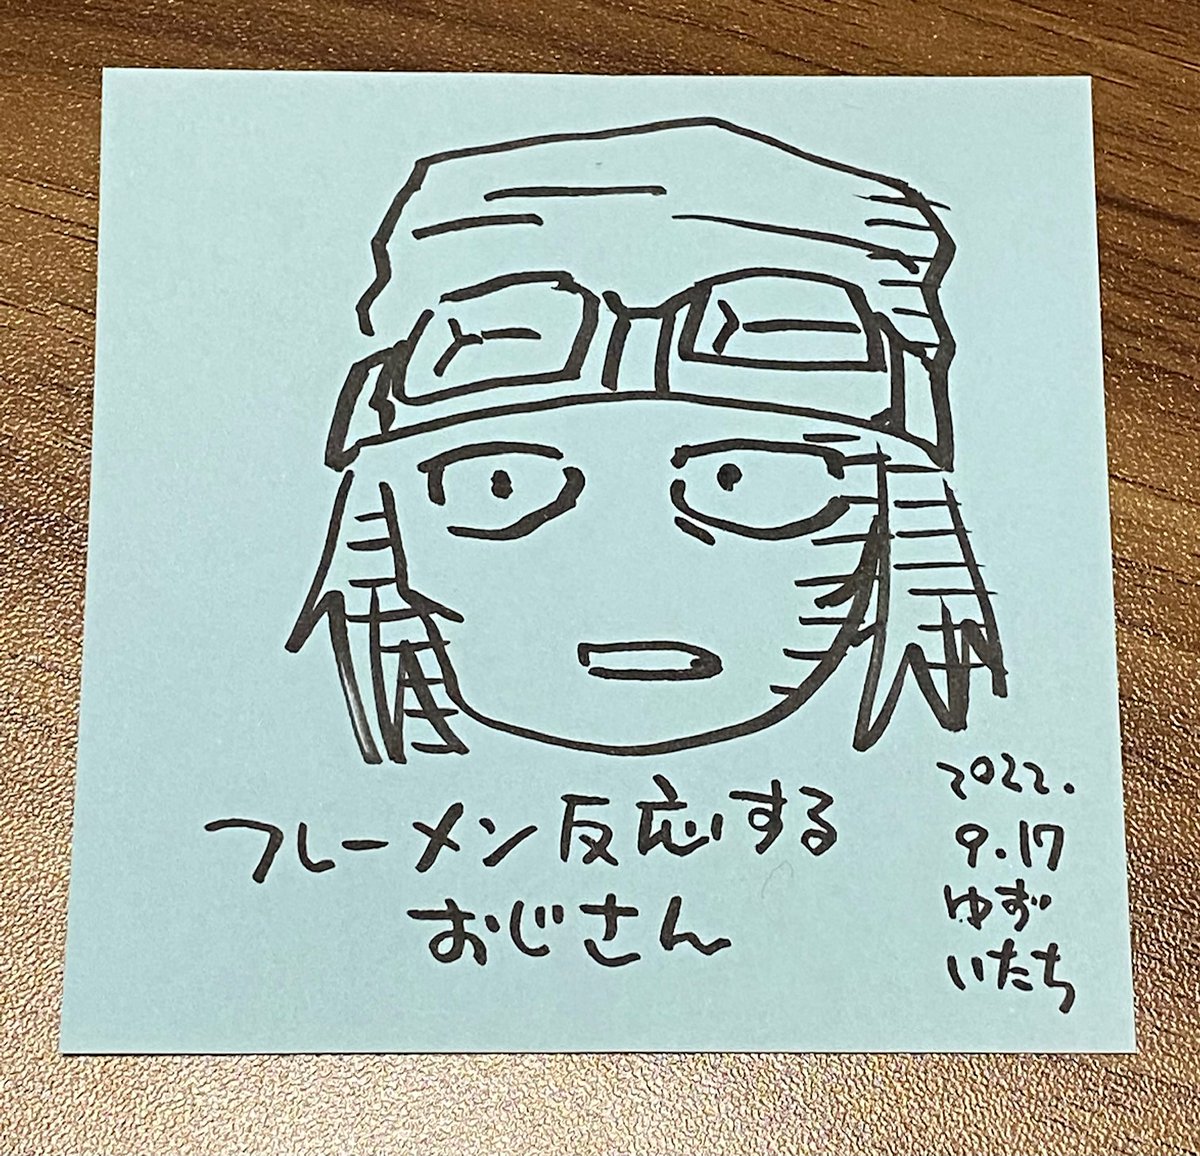 フレーメン反応する
おじさん
2022.
9.17
ゆず
いたち